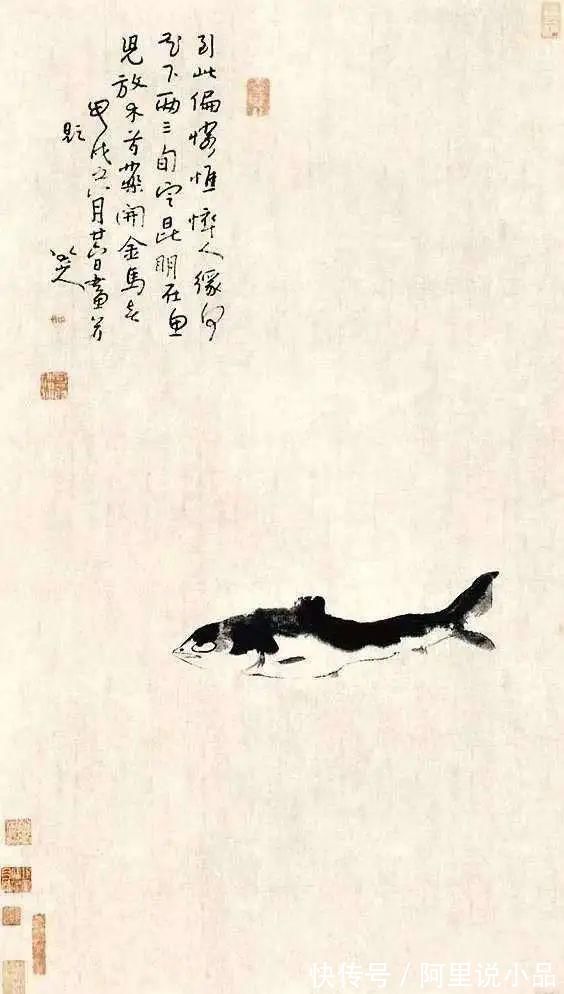 到此偏憐憔悴人緣何
花下兩三旬定昆明在魚
兒放木芍藥開金馬春
甲戌之六月廿六日畫并
題
八大山人
快传号 / 阿里说小品